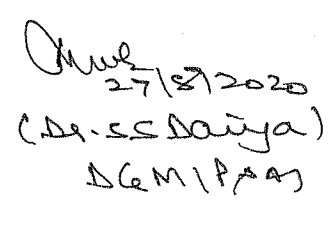 27/8/2020
(Dr. SS Daiya)
DGM/P&A